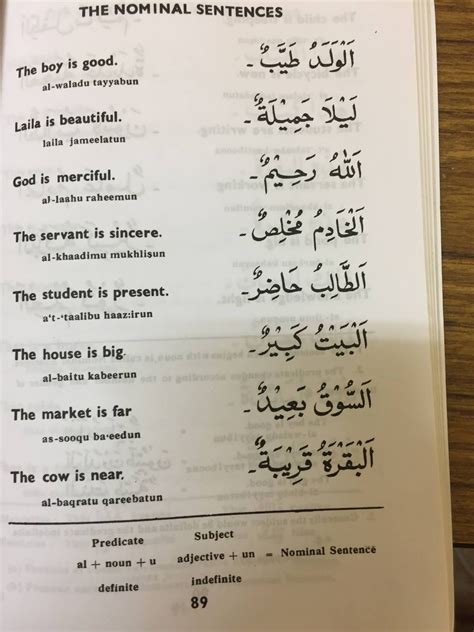 THE NOMINAL SENTENCES
The boy is good. اَلْوَلَدُ طَيِّبٌ -
al-waladu tayyabun
Laila is beautiful. لَيْلَا جَمِيْلَةٌ -
laila jameelatun
God is merciful. اَللّٰهُ رَحِيْمٌ -
al-laahu raheemun
The servant is sincere. اَلْخَادِمُ مُخْلِصٌ -
al-khaadimu mukhlisun
The student is present. اَلطَّالِبُ حَاضِرٌ -
a't-'taalibu haaz:irun
The house is big اَلْبَيْتُ كَبِيْرٌ -
al-baitu kabeerun
The market is far اَلسُّوْقُ بَعِيْدٌ -
as-sooqu ba'eedun
The cow is near. اَلْبَقْرَةُ قَرِيْبَةٌ -
al-baqratu qareebatun
Predicate Subject
al + noun + u adjective + un = Nominal Sentence
definite indefinite
89